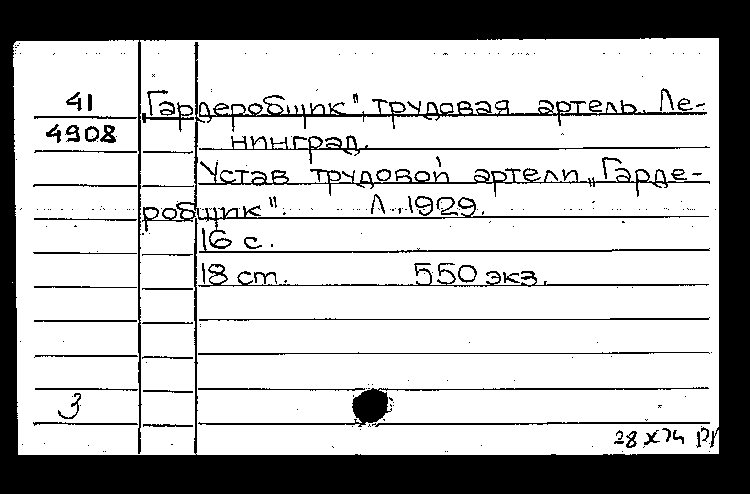 41
4908
„Гардеробщик", трудовая артель. Ле-
нинград.
Устав трудовой артели „Гарде-
робщик". Л., 1929.
16 с.
18 ст. 550 экз.
3
28 X 74